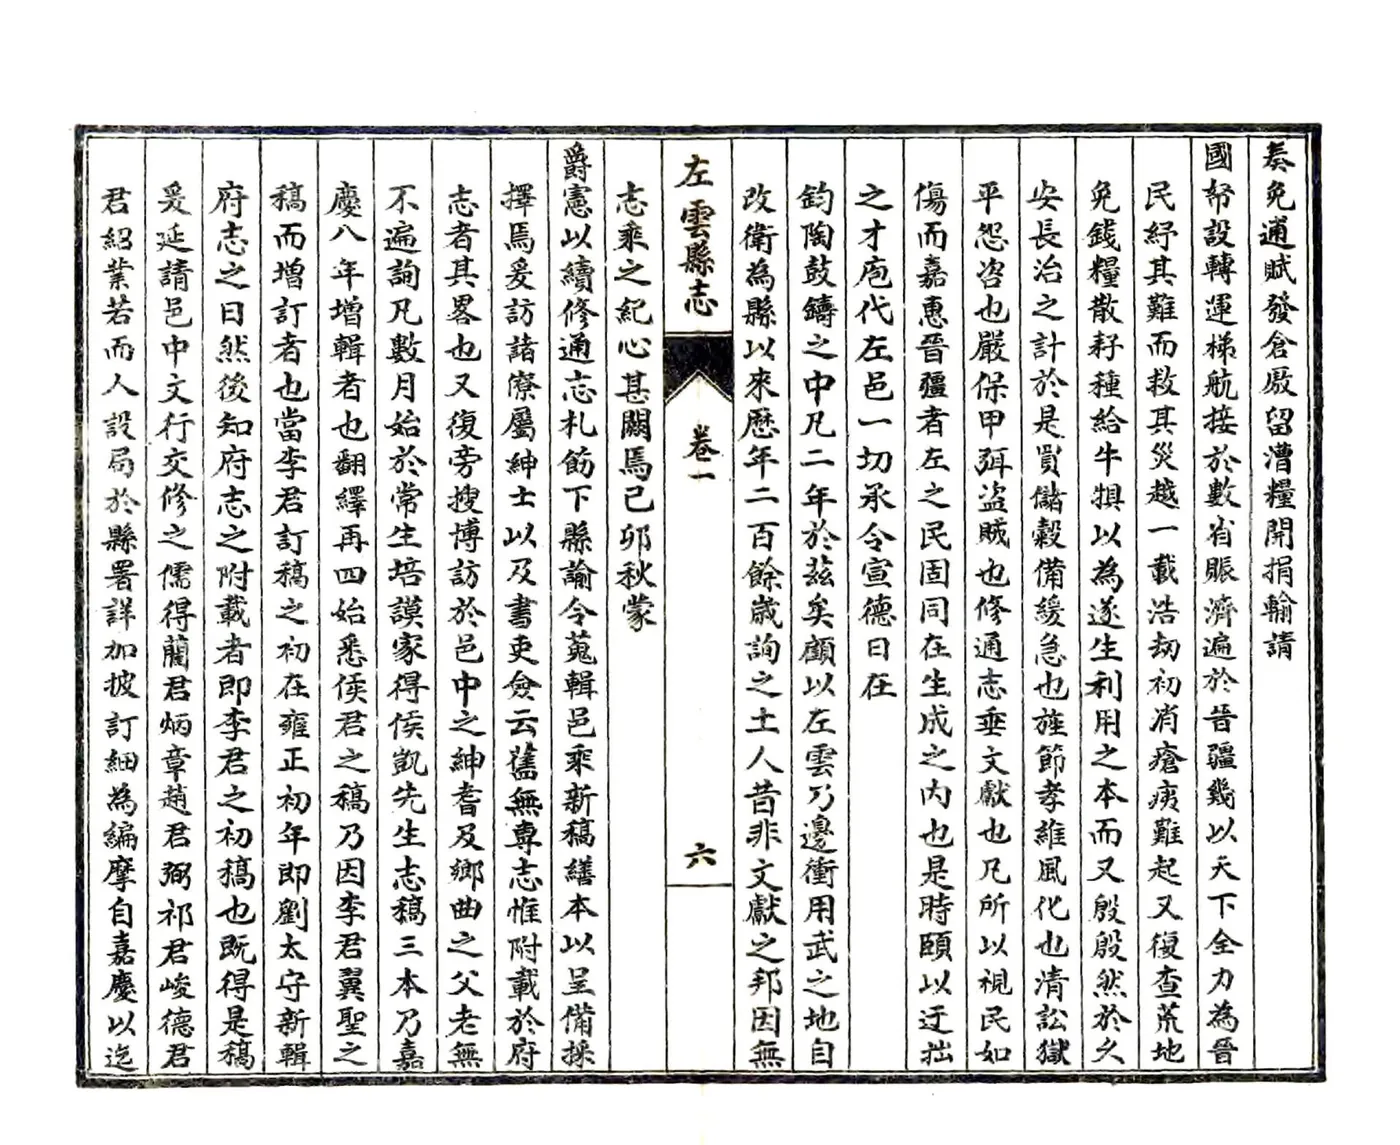 奏免逋賦發倉廒留漕糧開捐輸請
國帑設轉運梯航接於數省賑濟遍於晉疆幾以天下全力為晉
民紓其難而救其災越一載浩劫初消瘡痍難起又復查荒地
免錢糧散耔種給牛犋以為遂生利用之本而又殷殷然於久
安長治之計於是買儲穀備緩急也旌節孝維風化也清訟獄
平怨咨也嚴保甲弭盜賊也修通志垂文獻也凡所以視民如
傷而嘉惠晉疆者左之民固同在生成之內也是時頤以迂拙
之才庖代左邑一切承令宣德日在
鈞陶鼓鑄之中凡二年於茲矣顧以左雲乃邊衝用武之地自
改衛為縣以來歷年二百餘歲詢之土人昔非文獻之邦因無
左雲縣志
卷一
六
志乘之紀心甚闕焉己卯秋蒙
爵憲以續修通志札飭下縣諭令蒐輯邑乘新稿繕本以呈備採
擇焉爰訪諸僚屬紳士以及書吏僉云舊無專志惟附載於府
志者其畧也又復旁搜博訪於邑中之紳耆及鄉曲之父老無
不遍詢凡數月始於常生培謨家得侯凱先生志稿三本乃嘉
慶八年增輯者也翻繹再四始悉侯君之稿乃因李君翼聖之
稿而增訂者也當李君訂稿之初在雍正初年即劉太守新輯
府志之日然後知府志之附載者即李君之初稿也既得是稿
爰延請邑中文行交修之儒得藺君炳章趙君弼祁君峻德君
君紹業若而人設局於縣署詳加披訂細為編摩自嘉慶以迄